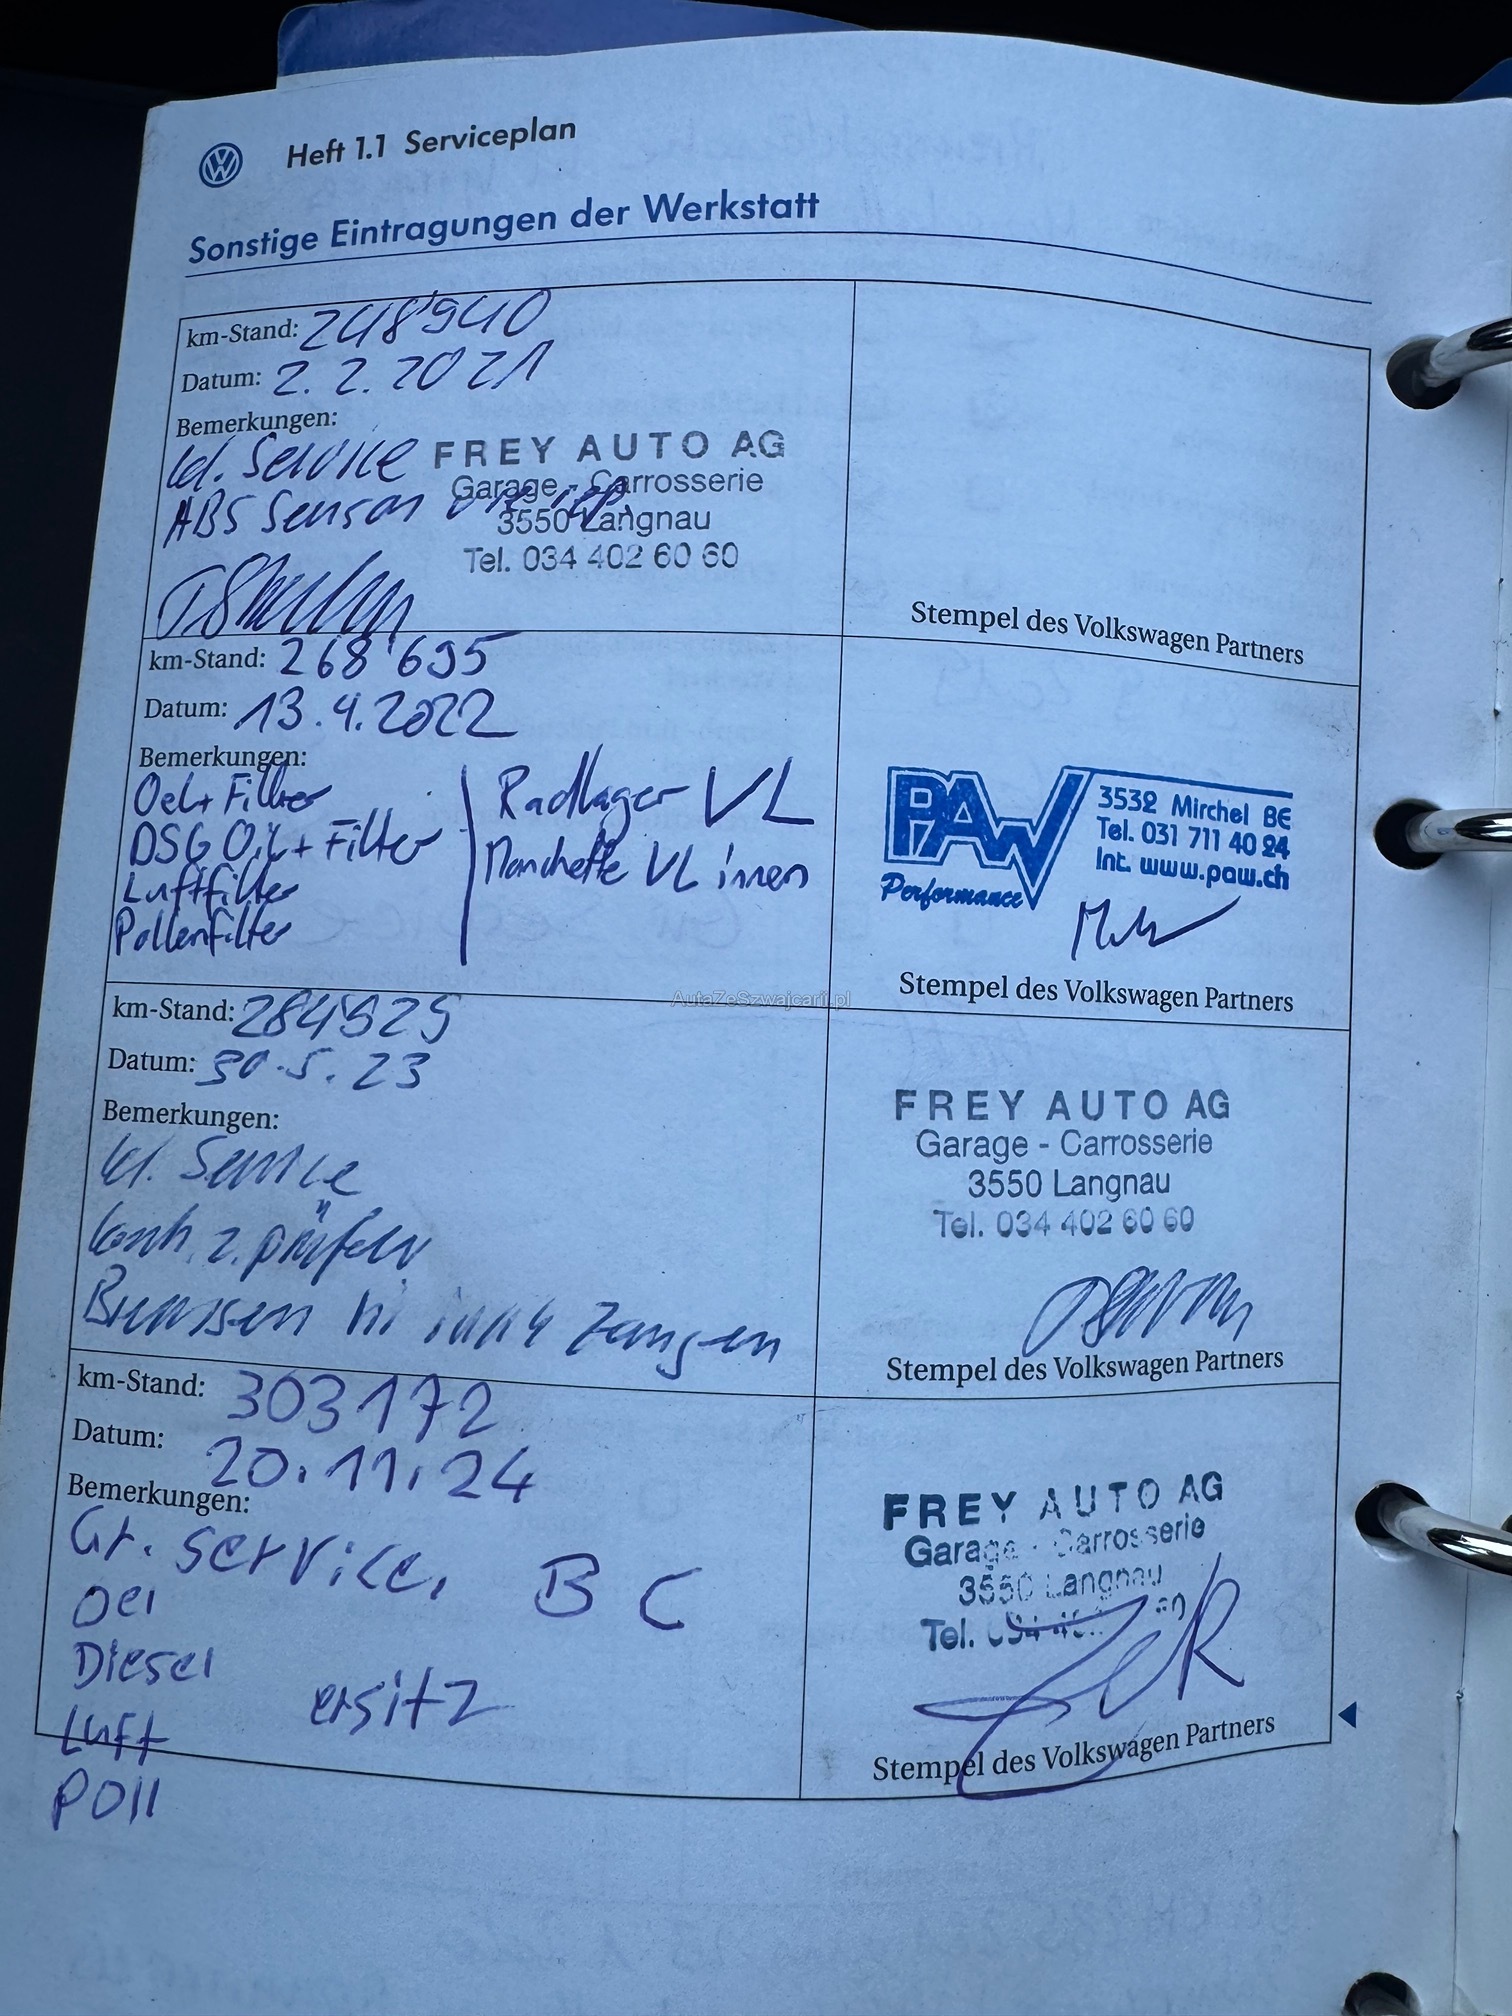 Heft 1.1 Serviceplan
Sonstige Eintragungen der Werkstatt
km-Stand: 248'940
Datum: 2.2.2021
Bemerkungen:
kl. Service
ABS Sensor
FREY AUTO AG
Garage - Carrosserie
3550 Langnau
Tel. 034 402 60 60
Stempel des Volkswagen Partners
km-Stand: 268'695
Datum: 13.4.2022
Bemerkungen:
Oel + Filter
DSG Oil + Filter
Luftfilter
Pollenfilter
Radlager VL
Manchette VL innen
PAW
Performance
3532 Mirchel BE
Tel. 031 711 40 24
Int. www.paw.ch
Stempel des Volkswagen Partners
AutaZeSzwajcarii.pl
km-Stand: 284925
Datum: 30.5.23
Bemerkungen:
kl. Service
z. prüfen
Bremsen Zangen
FREY AUTO AG
Garage - Carrosserie
3550 Langnau
Tel. 034 402 60 60
Stempel des Volkswagen Partners
km-Stand: 303172
Datum: 20.11.24
Bemerkungen:
Gr. Service, B C
Oel
Diesel
Luft ersitz
Poll
FREY AUTO AG
Garage - Carrosserie
3550 Langnau
Tel. 034
Stempel des Volkswagen Partners